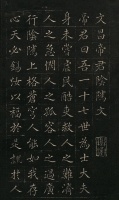 文昌帝君陰騭文
帝君曰吾一十七世為士大夫
身未嘗虐民酷吏救人之難濟
人之急憫人之孤容人之過廣
行陰騭上格蒼穹人能如我存
心天必錫汝以福於是訓於人